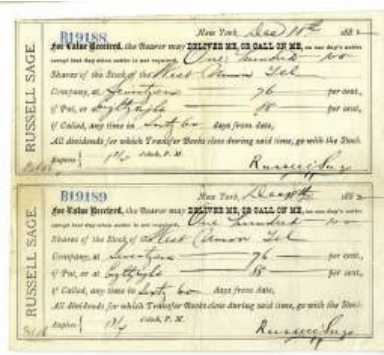 RUSSELL SAGE.
B19188
New York, Dec 18th 188
For Value Received, the Bearer may DELIVER ME, OR CALL ON ME, on one day's notice
except last day when notice is not required, One hundred
Shares of the Stock of the West Union Tel
Company, at Seventysix 76 per cent.,
if Put, or Eightyeight 88 per cent.,
if Called, any time in Sixty 60 days from date,
All dividends for which Transfer Books close during said time, go with the Stock.
Expires o'clock, P. M.
Russell Sage
RUSSELL SAGE.
B19189
New York, Dec 18th 188
For Value Received, the Bearer may DELIVER ME, OR CALL ON ME, on one day's notice
except last day when notice is not required, One hundred
Shares of the Stock of the West Union Tel
Company, at 76 per cent.,
if Put, or 88 per cent.,
if Called, any time in Sixty 60 days from date,
All dividends for which Transfer Books close during said time, go with the Stock.
Expires o'clock, P. M.
Russell Sage